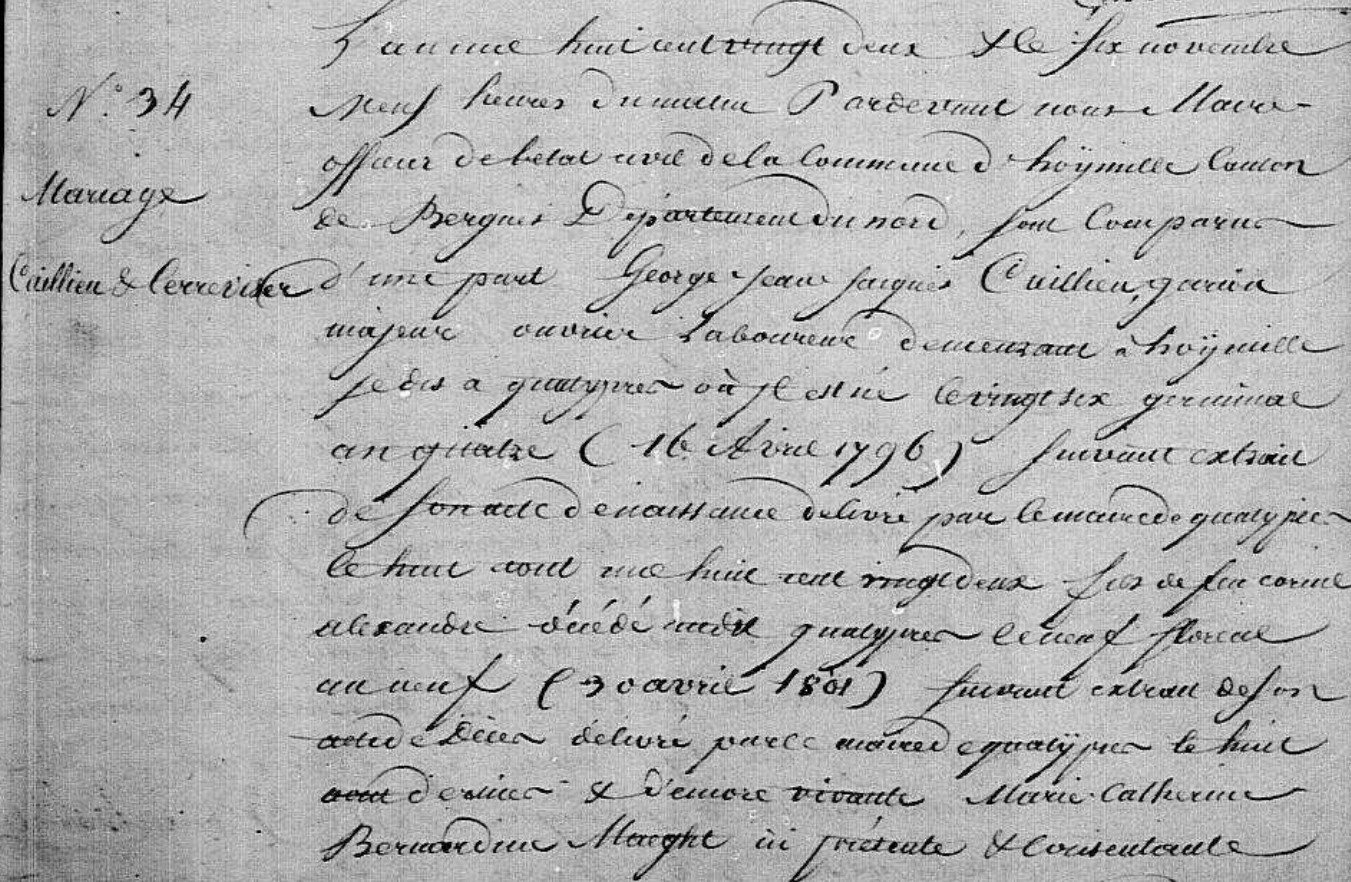 N.° 34
Mariage
Caillieu & Cerrevisier
L'an mil huit cent vingt deux & le Six novembre
Neuf heures du matin Pardevant nous Maire
officier de l'etat civil de la Commune d'hoÿmille Canton
de Bergues Département du nord, sont Comparus
d'une part George Jean Jacques Caillieu, garçon
majeur ouvrier Laboureur demeurant à hoÿmille
je dis a quatypres où Jl est né le vingt six germinal
an quatre (16 Avril 1796) suivant extrait
de son acte de naissance délivré par le maire de quatypres
le huit aout mil huit cent vingt deux fils de feu
alexandre décédé audit quatypres le neuf floreal
an neuf (30 avril 1801) suivant extrait de son
acte de Décès délivré par le maire de quatypres le huit
aout dernier & d'encore vivante Marie Catherine
Bernardine Maeght ici présente & Consentante